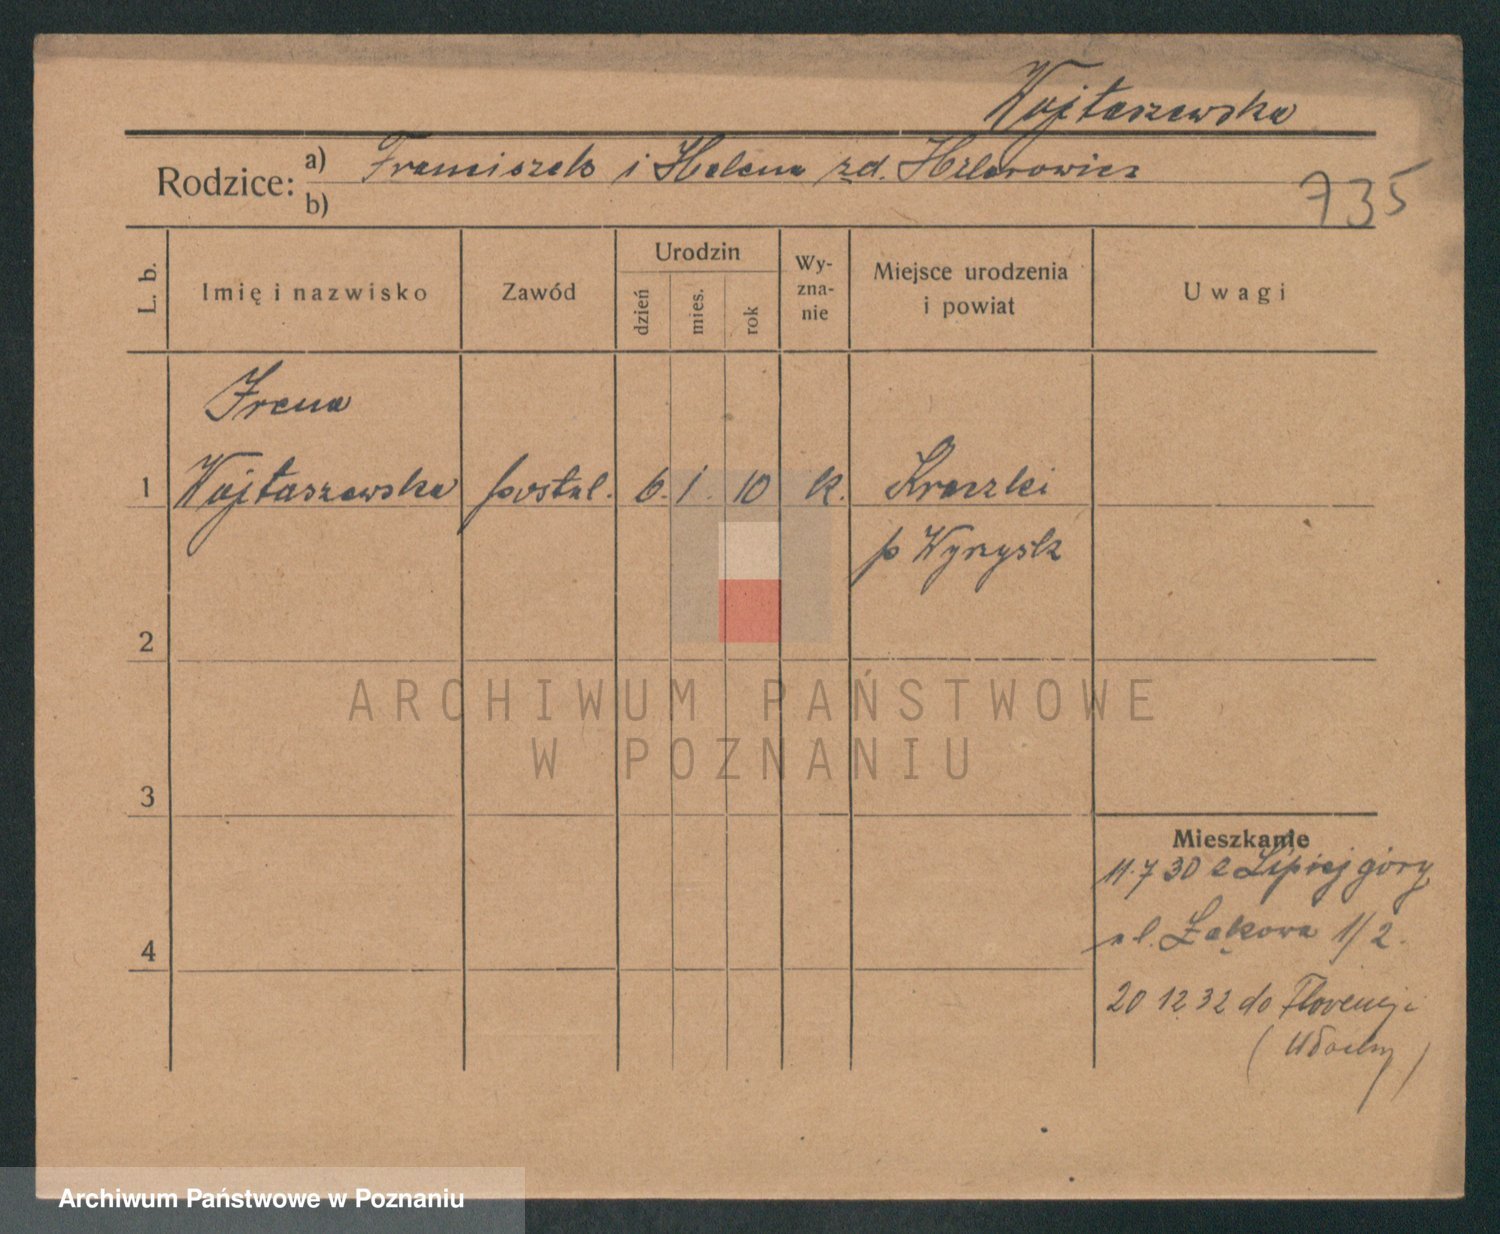 Wojtaszewska
Rodzice: a) Franciszek i Helena zd.
b)
735
L. b.
Imię i nazwisko
Zawód
Urodzin
dzień
mies.
rok
Wy-
zna-
nie
Miejsce urodzenia
i powiat
Uwagi
Irena
1 Wojtaszewska postul. 6. 1. 10 k. Kraczki
p Wyrzysk
2
3
4
Mieszkanie
11.7 30 z Lipiej góry
ul. Łąkowa 1/2.
20 12 32 do Florencji
(Włochy)
ARCHIWUM PAŃSTWOWE
W POZNANIU
Archiwum Państwowe w Poznaniu